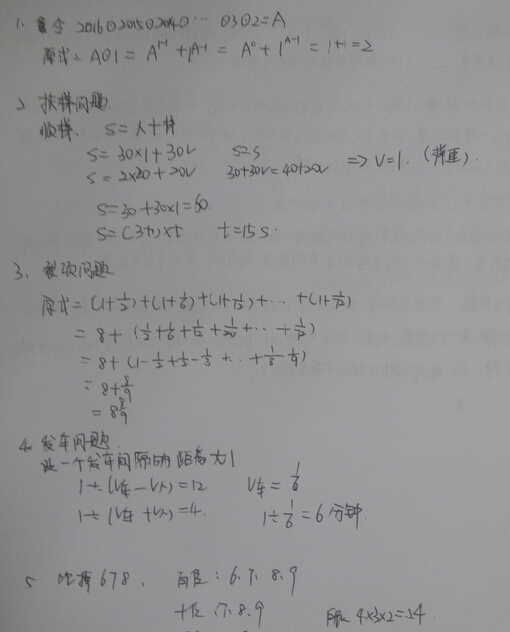 1. 首令 2016⊙2015⊙2014⊙… ⊙3⊙2=A
原式=A⊙1=A¹⁻¹+1ᴬ⁻¹=A⁰+1ᴬ⁻¹=1+1=2
2. 扶梯问题.
顺梯. S=人+梯
S=30×1+30V S=S
S=2×20+20V 30+30V=40+20V ⇒V=1. (梯速).
S=30+30×1=60
S=(3+1)×t t=15s.
3. 裂项问题
原式=(1+1/2)+(1+1/6)+(1+1/12)+…+(1+1/72)
=8+(1/2+1/6+1/12+1/20+…+1/72)
=8+(1-1/2+1/2-1/3+…+1/8-1/9)
=8+8/9
=8 8/9
4. 发车问题.
设一个发车间隔的距离为1
1÷(V车-V人)=12 V车=1/6
1÷(V车+V人)=4. 1÷1/6=6分钟.
5 678. 百位:6.7.8.9
十位:7.8.9
4×3×2=24